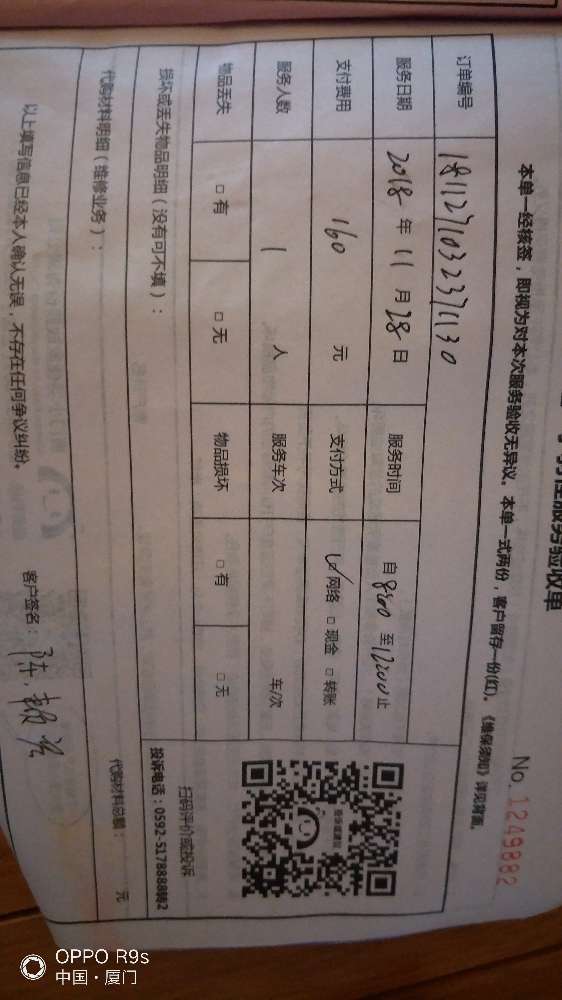 服务验收单
No. 1249882
本单一经核签，即视为对本次服务验收无异议。本单一式两份，客户留存一份(红)。《维保须知》详见背面。
订单编号 1811271032371130
服务日期 2018年11月28日 服务时间 自800至1200止
支付费用 160元 支付方式 ☑网络 □现金 □转账
服务人数 1人 服务车次 车/次
物品丢失 □有 □无 物品损坏 □有 □无
扫码评价或投诉
投诉电话：0592-5178888转2
损坏或丢失物品明细（没有可不填）：
代购材料明细（维修业务）：
代购材料总额： 元
以上填写信息已经本人确认无误，不存在任何争议纠纷。 客户签名：陈
OPPO R9s
中国·厦门